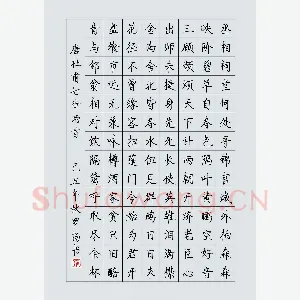 丞相祠堂何處尋錦官城外柏森森
映階碧草自春色隔葉黃鸝空好音
三顧頻煩天下計兩朝開濟老臣心
出師未捷身先死長使英雄淚滿襟
舍南舍北皆春水但見群鷗日日來
花徑不曾緣客掃蓬門今始為君開
盤飧市遠無兼味樽酒家貧只舊醅
肯與鄰翁相對飲隔籬呼取盡餘杯
唐杜甫七律兩首
Shufawang.CN